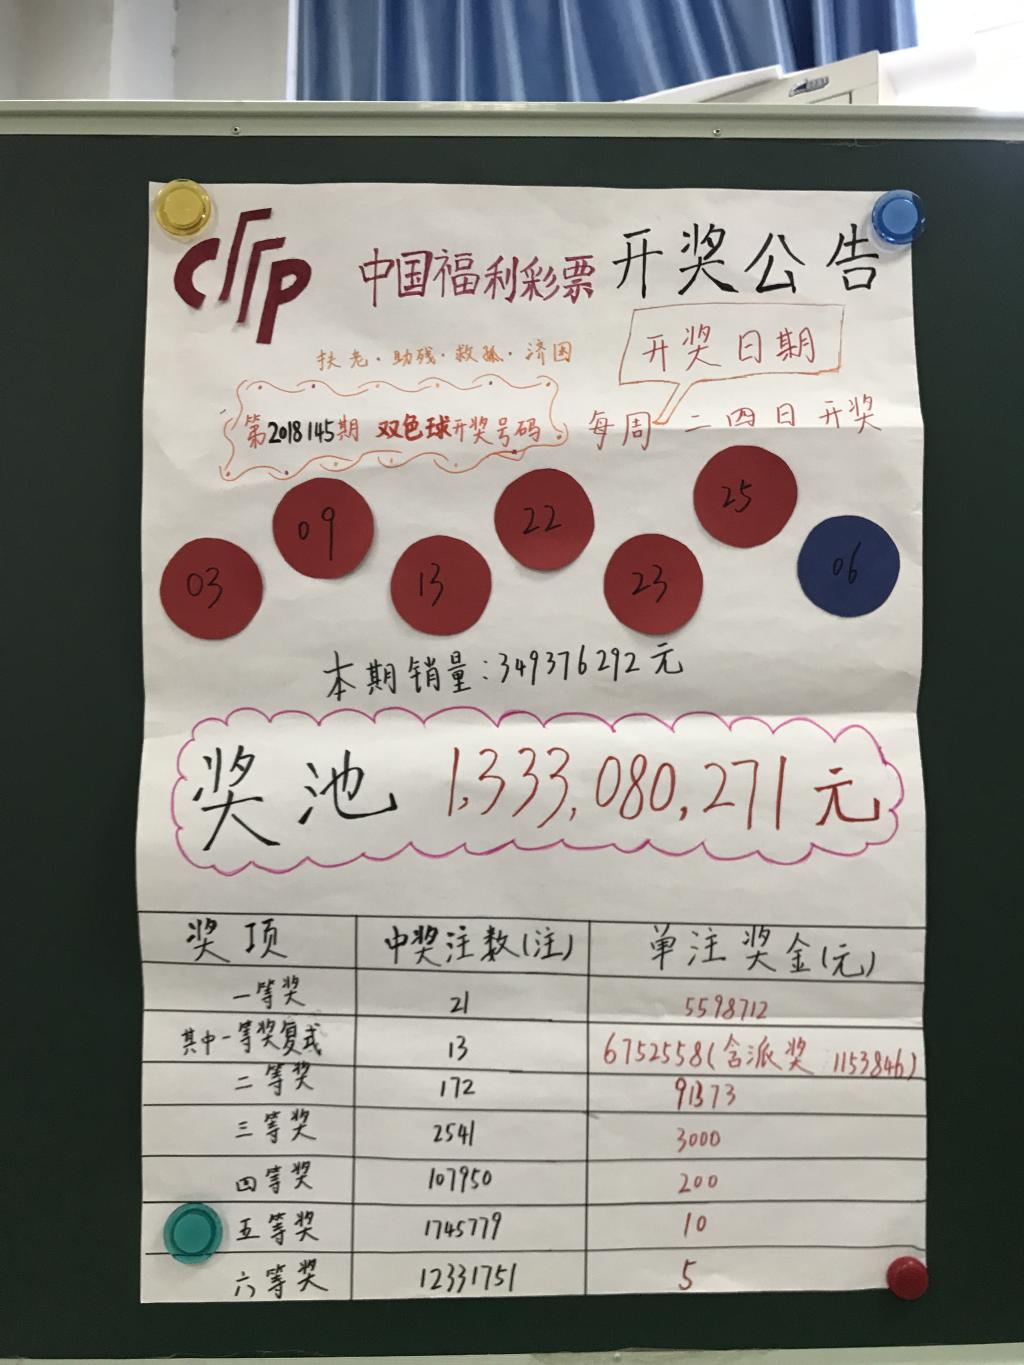 中国福利彩票 开奖公告
扶老·助残·救孤·济困
开奖日期
第2018145期 双色球开奖号码
每周二四日开奖
03 09 13 22 23 25 06
本期销量:349376292元
奖池 1,333,080,271元
奖项 中奖注数(注) 单注奖金(元)
一等奖 21 5598712
其中一等奖复式 13 6752558(含派奖 1153846)
二等奖 172 91373
三等奖 2541 3000
四等奖 107950 200
五等奖 1745779 10
六等奖 12331751 5